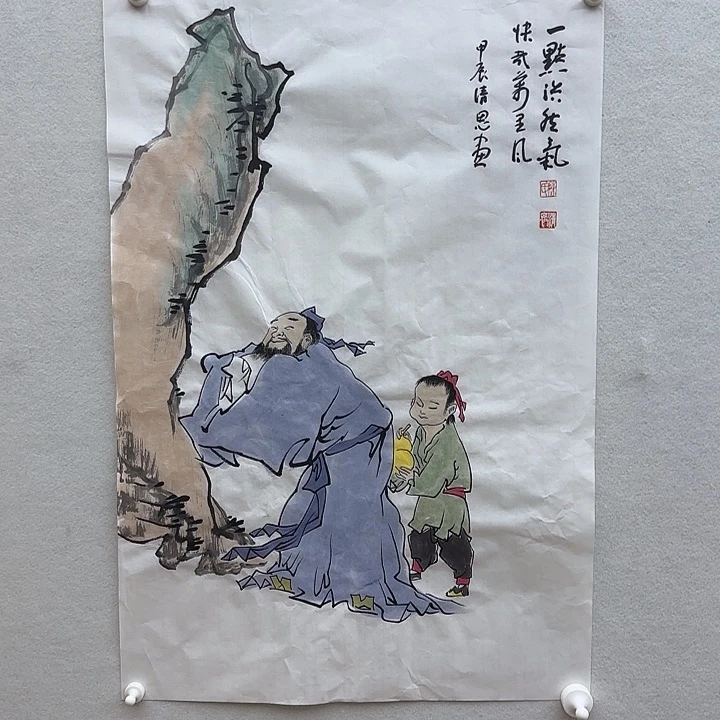 一點浩然氣
快哉萬里风
甲辰清思畫